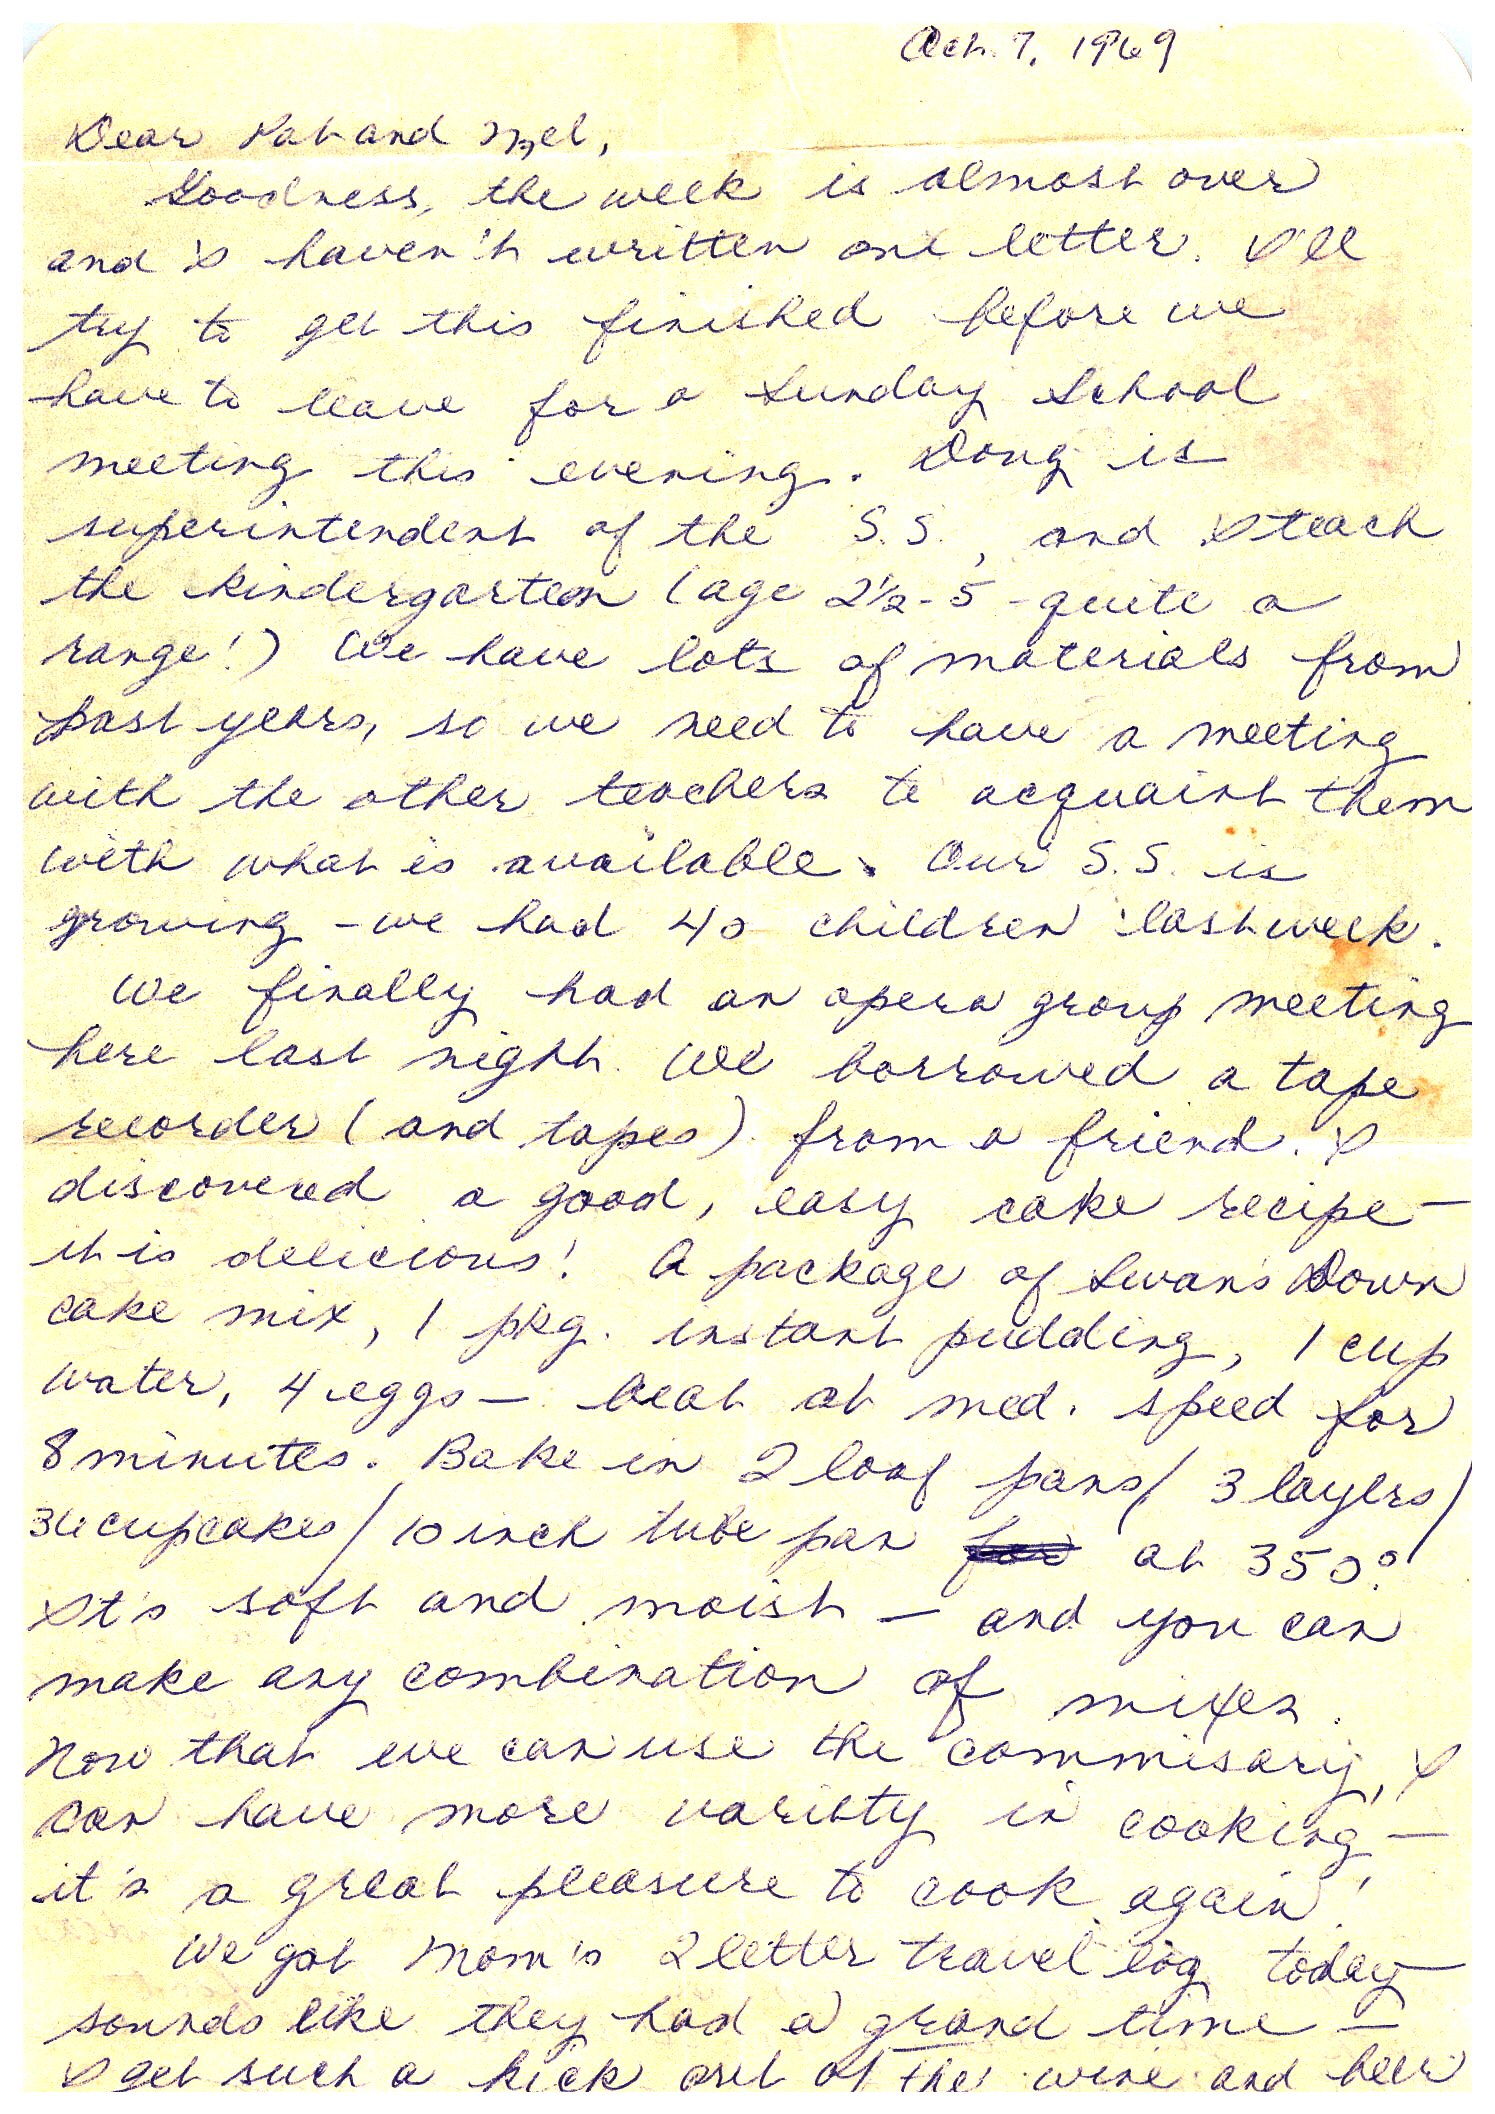 Oct. 7, 1969
Dear Pat and Mel,
Goodness, the week is almost over
and I haven't written one letter. I'll
try to get this finished before we
have to leave for a Sunday School
meeting this evening. Doug is
superintendent of the S.S., and I teach
the kindergarten (age 2½-5 - quite a
range!) We have lots of materials from
past years, so we need to have a meeting
with the other teachers to acquaint them
with what is available. Our S.S. is
growing - we had 40 children last week.
We finally had an opera group meeting
here last night. We borrowed a tape
recorder (and tapes) from a friend. I
discovered a good, easy cake recipe -
it is delicious! A package of Swans Down
cake mix, 1 pkg. instant pudding, 1 cup
water, 4 eggs - beat at med. speed for
8 minutes. Bake in 2 loaf pans/ 3 layers/
36 cupcakes/ 10 inch tube pan for at 350°.
It's soft and moist - and you can
make any combination of mixes.
Now that we can use the commisary, I
can have more varibty in cooking -
it's a great pleasure to cook again!
We got Mom's 2 letter travel log today -
sounds like they had a grand time -
I get such a kick out of the wine and beer